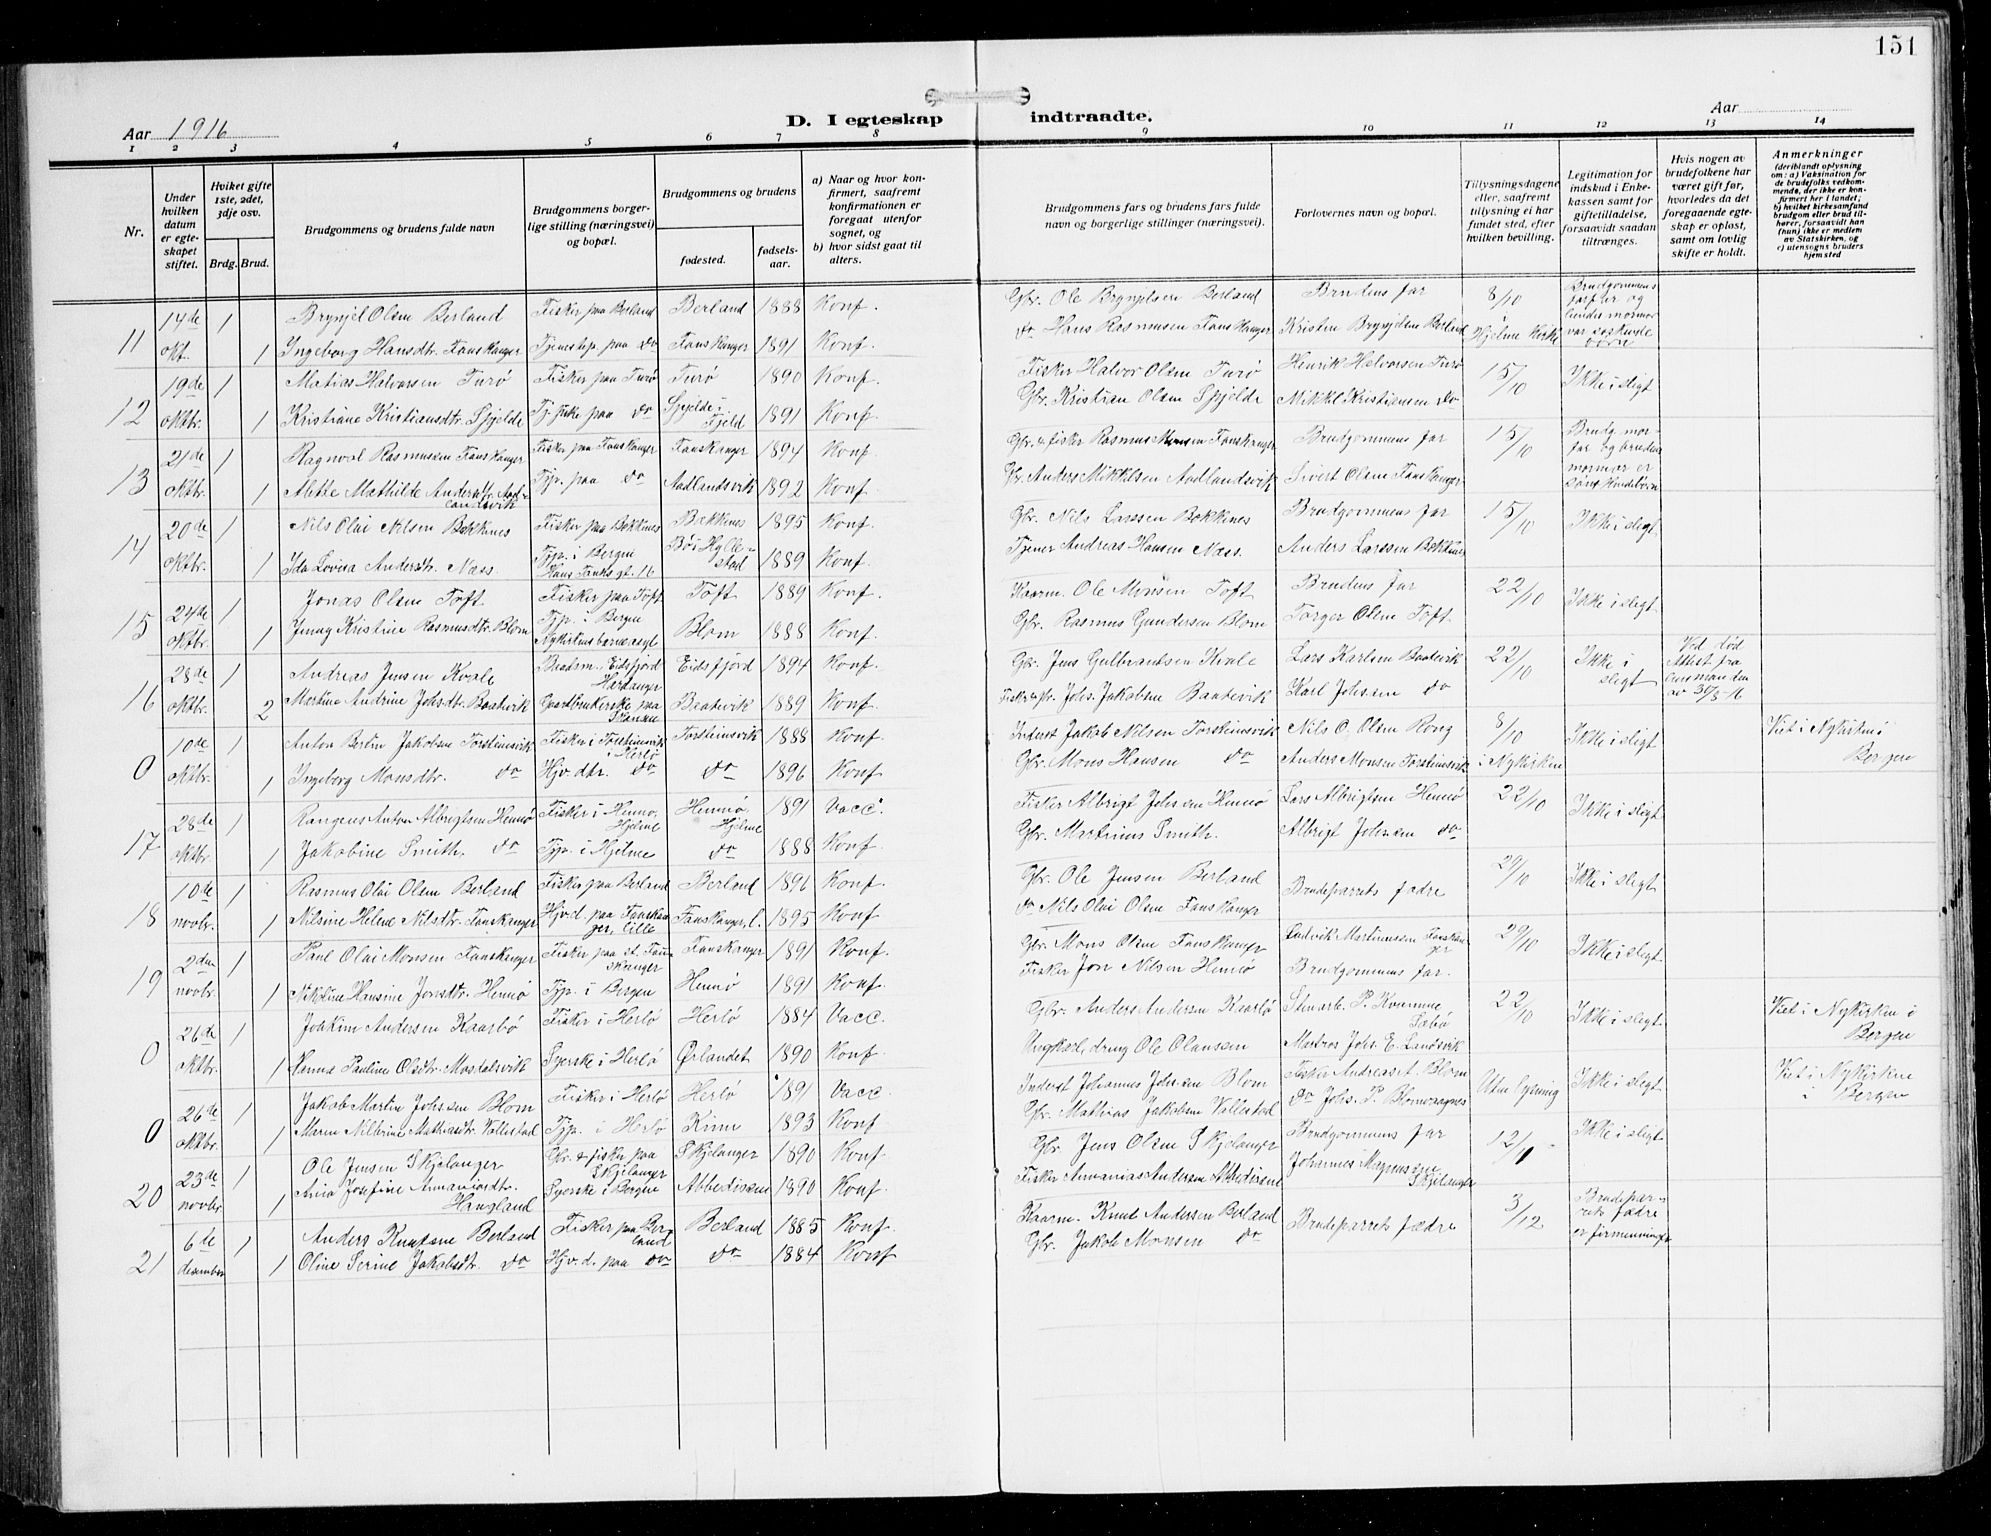 151
Aar 1916
D. I egteskap indtraadte.
Aar
1 2 3 4 5 6 7 8 9 10 11 12 13 14
Nr.
Under hvilken datum er egteskapet stiftet.
Hviket gifte 1ste, 2det, 3dje osv.
Brdg. Brud.
Brudgommens og brudens fulde navn
Brudgommens borgerlige stilling (næringsvei) og bopæl.
Brudgommens og brudens
fødested. fødselsaar.
a) Naar og hvor konfirmert, saafremt konfirmationen er foregaat utenfor sognet, og
b) hvor sidst gaat til alters.
Brudgommens fars og brudens fars fulde navn og borgerlige stillinger (næringsvei).
Forlovernes navn og bopæl.
Tillysningsdagene eller, saafremt tillysning ei har fundet sted, efter hvilken bevilling.
Legitimation for indskud i Enkekassen samt for giftetilladelse, forsaavidt saadan tiltrænges.
Hvis nogen av brudefolkene har været gift før, hvorledes da det foregaaende egteskap er opløst, samt om lovlig skifte er holdt.
Anmerkninger
(deriblandt oplysning om: a) Vaksination for de brudefolks vedkommende, der ikke er konfirmert her i landet; b) hvilket kirkesamfund brudgom eller brud tilhører, forsaavidt han (hun) ikke er medlem av Statskirken, og c) utensogns bruders hjemsted
11 14de okt. 1 Brynjel Olsen Berland Fisker paa Berland Berland 1888 Konf. Gbr. Ole Brynjelsen Berland Brudens far 8/10 Brudgommens farfar og brudes mormor var søskende børn
1 Ingeborg Hansdtr. Fanskanger Tjenestep. paa do Fanskanger 1891 Konf. do Hans Rasmusen Fanskanger Kristen Brynjelsen Berland Hjelme Kirke
12 19de oktbr. 1 Matias Halvorsen Turø Fisker paa Turø Turø 1890 Konf. Fisker Halvor Olsen Turø Henrik Halvorsen Turø 15/10 Ikke i slegt
1 Kristiane Kristiansdtr. Spjelde Tj. pike paa do Spjelde i Fjeld 1891 Konf. Gbr. Kristian Olsen Spjelde Mikkel Kristiansen do
13 21de oktbr. 1 Ragnval Rasmussen Fanskanger Fisker paa Fanskanger Fanskanger 1894 Konf. Gbr. & fisker Rasmus Monsen Fanskanger Brudgommens far 15/10 Brudg. morfar og brudens mormor er søskendebørn
1 Mette Mathilde Andersdtr. Aadlandsvik Tjp. paa do Aadlandsvik 1892 Konf. Gbr. Anders Mikkelsen Aadlandsvik Sivert Olsen Fanskanger
14 20de oktbr. 1 Nils Olai Nilsen Bakkenes Fisker paa Bakkenes Bakkenes 1895 Konf. Gbr. Nils Larssen Bakkenes Brudgommens far 15/10 Ikke i slegt
1 Ida Lovisa Andersdtr. Næss Tjp. i Bergen Hans Tanks gt. 16 Bø i Hyllestad 1889 Konf. Tjener Andreas Hansen Næss. Anders Larssen Bakkenes
15 24de oktbr. 1 Jonas Olsen Toft Fisker paa Toft Toft 1889 Konf. Kaarm. Ole Monsen Toft Brudens far 22/10 Ikke i slegt
1 Jenny Kristine Rasmusdtr. Blom Tjp. i Bergen Nykirkens barneasyl Blom 1888 Konf. Gbr. Rasmus Gundersen Blom Torger Olsen Toft.
16 28de oktbr. 1 Andreas Jensen Kvale Baadsm. Eidsfjord Hardanger Eidsfjord 1894 Konf. Gbr. Jens Gulbrandsen Kvale Lars Karlsen Baatevik 22/10 Ikke i slegt Ved død Attest fra lensmanden av 31/8-16
2 Martine Andrine Johsdtr. Baatevik Gaardbrukerske paa Skansen Baatevik 1889 Konf. Fisker & Gbr. Johs. Jakobsen Baatevik Karl Johssen do
0 10de oktbr. 1 Anton Bertin Jakobsen Torsteinsvik Fisker i Torsteinsvik i Herlø Torsteinsvik 1888 Konf. Inderst Jakob Nilsen Torsteinsvik Nils O. Olsen Rong 8/10 Ikke i slegt Viet i Nykirken i Bergen
1 Ingeborg Monsdtr. do Hjv. dtr. do do 1896 Konf. Gbr. Mons Hansen do Anders Monsen Torsteinsvik i Nykirken
17 28de oktbr. 1 Rangens Anton Albrigtsen Hennø Fisker i Hennø, Hjelme Hennø Hjelme 1891 Vacc. Fisker Albrigt Johssen Hennø Lars Albrigtsen Hennø 22/10 Ikke i slegt.
1 Jakobine Smith. do Tjp. i Hjelme do 1888 Konf. Gbr. Martinus Smith. Albrigt Johssen do
18 10de novbr. 1 Rasmus Olai Olsen Berland Fisker paa Berland Berland 1896 Konf. Gbr. Ole Jensen Berland Brudeparrets fædre 29/10 Ikke i slegt
1 Nilsine Helene Nilsdtr. Fanskanger Hjv.d. paa Fanskanger, lille Fanskanger, l. 1895 Konf. do Nils Olai Olsen Fanskanger
19 2den novbr. 1 Paul Olai Monsen Fanskanger Fisker paa st. Fanskanger Fanskanger 1891 Konf. Gbr. Mons Olsen Fanskanger Ludvik Martinussen Fanskanger 29/10 Ikke i slegt.
1 Nikoline Hansine Jonsdtr. Hennø Tjp. i Bergen Hennø 1891 Konf. Fisker Jon Nilsen Hennø Brudgommens far.
0 26de oktbr. 1 Joakim Andersen Kaarbø Fisker i Herlø Herlø 1884 Vacc. Gbr. Anders Andersen Kaarbø Stenarb. P. Kvamme Sæbø 22/10 Ikke i slegt. Viet i Nykirken i Bergen
1 Hanna Pauline Olsdtr. Mosdalsvik Syerske i Herlø Ørlandet 1890 Konf. Ungkarl, dreng Ole Olaussen Matros Johs. E. Landsvik
0 26de oktbr. 1 Jakob Martin Johssen Blom Fisker i Herlø Herlø 1891 Vacc. Inderst Johannes Johssen Blom Fisker Andreas Blom Uten lysning Ikke i slegt. Viet i Nykirken i Bergen
1 Maren Nilbrine Mathiasdtr. Vallestad Tjp. i Herlø Kinn 1893 Konf. Gbr. Mathias Jakobsen Vallestad do Johs. P. Blomvaagnes
20 23de novbr. 1 Ole Jensen Skjelanger Gbr. & fisker paa Skjelanger Skjelanger 1890 Konf. Gbr. Jens Olsen Skjelanger Brudgommens far 12/11 Ikke i slegt.
1 Ana Josefine Annaniasdtr. Haugland Syerske i Bergen Abbedissen 1890 Konf. Fisker Annanias Andersen Abbedissen Johannes Magnussen Skjelanger
21 6de desember 1 Anders Knutsen Berland Fisker paa Berland Berland 1885 Konf. Kaarm. Knut Andersen Berland Brudeparrets fædre 3/12 Brudeparrets fædre er firmenninger
1 Oline Serine Jakobsdtr. do Hjv. d. paa do do 1884 Konf Gbr. Jakob Monsen do